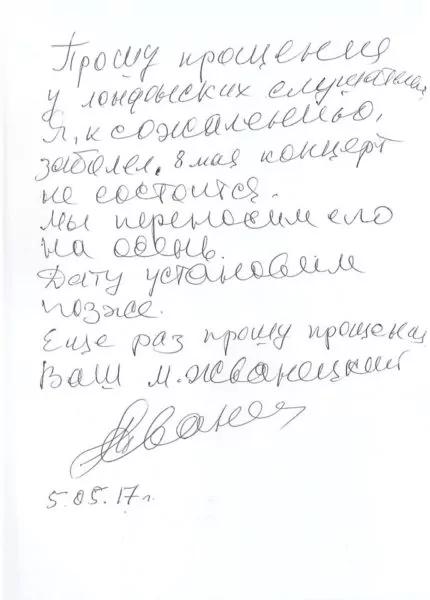 Прошу прощения
у лондонских слушателей
Я, к сожалению,
заболел. 8 мая концерт
не состоится.
Мы переносим его
на осень.
Дату установим
позже.
Еще раз прошу прощения
Ваш М. Жванецкий
Жванец
5.05.17 г.